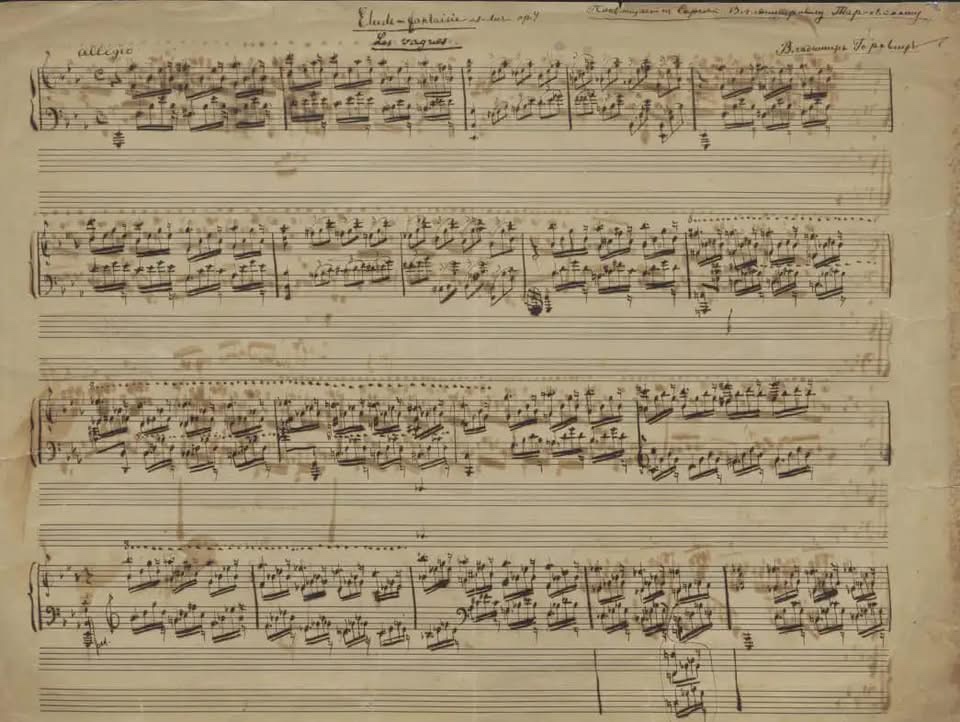 Etude-fantaisie es-dur op. 4
Посвящается Сергею Владимировичу Тарновскому
Les vagues
Владимиръ Горовицъ
allegro